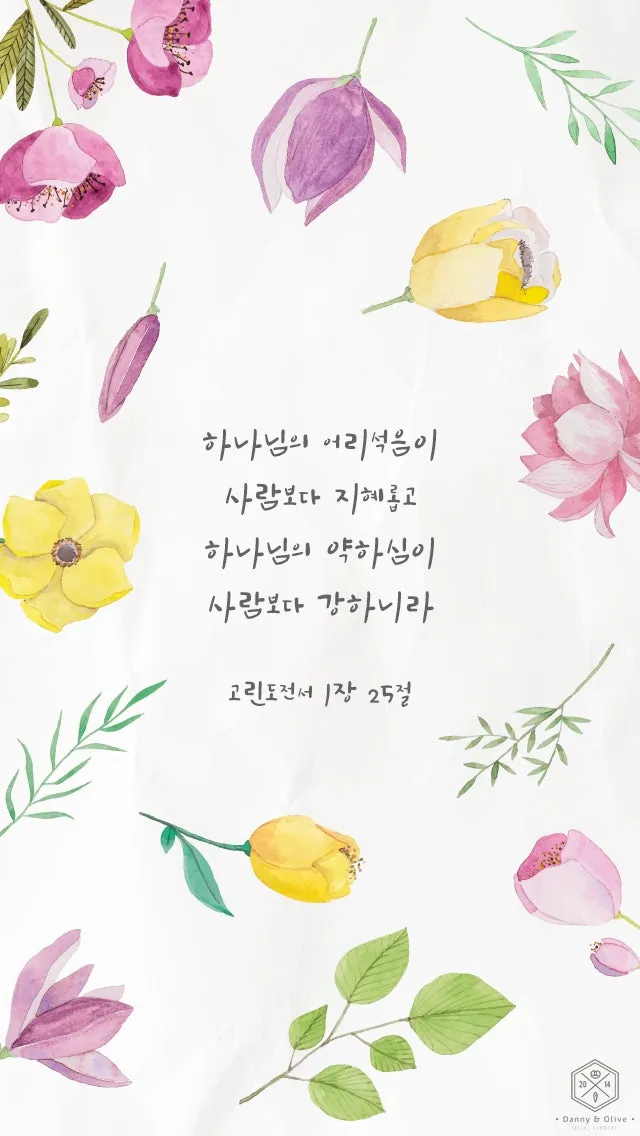 하나님의 어리석음이
사람보다 지혜롭고
하나님의 약하심이
사람보다 강하니라
고린도전서 1장 25절
20 14
• Danny & Olive •